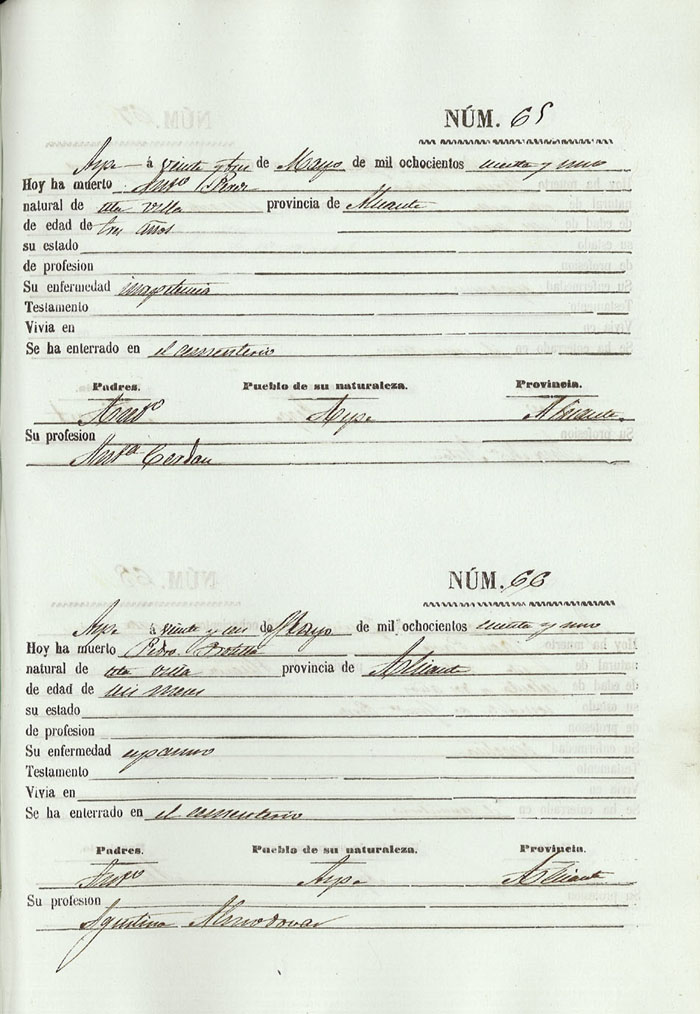 NÚM. 65
Aspe á veinte y tres de Mayo de mil ochocientos y uno
Hoy ha muerto Antº
natural de esta villa provincia de Alicante
de edad de tres años
su estado
de profesion
Su enfermedad inapetencia
Testamento
Vivia en
Se ha enterrado en el cementerio
Padres. Pueblo de su naturaleza. Provincia.
Antº Aspe Alicante.
Su profesion
Antª Cerdan
NÚM. 66
Aspe á veinte y de Mayo de mil ochocientos y uno
Hoy ha muerto Pedro
natural de esta villa provincia de Alicante
de edad de seis meses
su estado
de profesion
Su enfermedad espasmo
Testamento
Vivia en
Se ha enterrado en el cementerio
Padres. Pueblo de su naturaleza. Provincia.
Antº Aspe Alicante
Su profesion
Agustina Almodovar